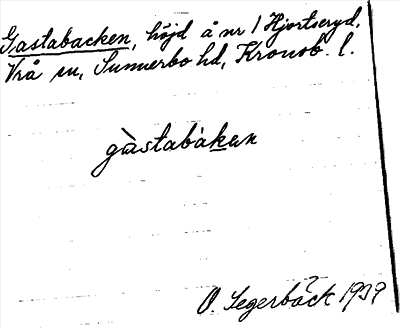 Gastabacken, höjd å nr 1 Hjortseryd,
Vrå sn, Sunnerbo hd, Kronob. l.
gàstabàken
O. Segerbäck 1939